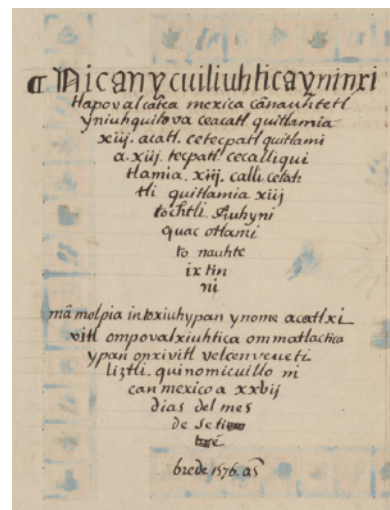 ¶ Nican ycuiliuhtica yninxi
Hapovalcâtca mexica cânauhtetl
yniuhquitova ceacatl quitlamia
xiij. acatl. cetecpatl quitlami
a. xiij. tecpatl cecalliqui
tlamia. xiij. calli. cetoh
tli quitlamia xiij
tochtli. Auhyni
quac otlami
to nauhte
ix tin
ni
mâ molpia intoxiuhypan ynome acatlxi
vitl ompovalxiuhtica ommatlactica
ypan onxivitl velcenveueti
liztli. quinomicuillo ni
can mexico a xxvij
dias del mes
de Seti
brede 1576. aṣ